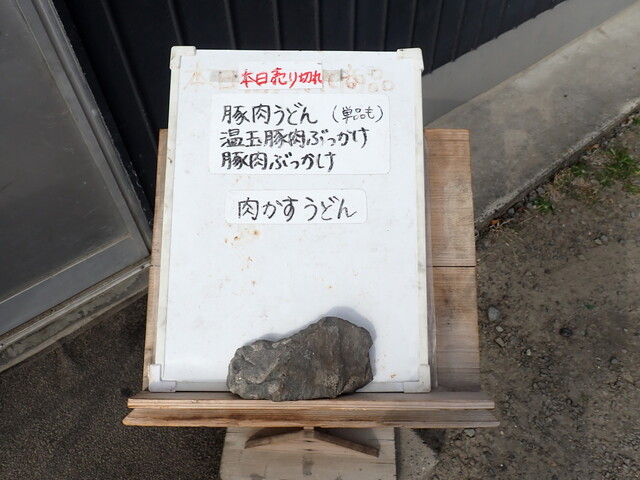 本日売り切れ
豚肉うどん（単品も）
温玉豚肉ぶっかけ
豚肉ぶっかけ
肉かすうどん